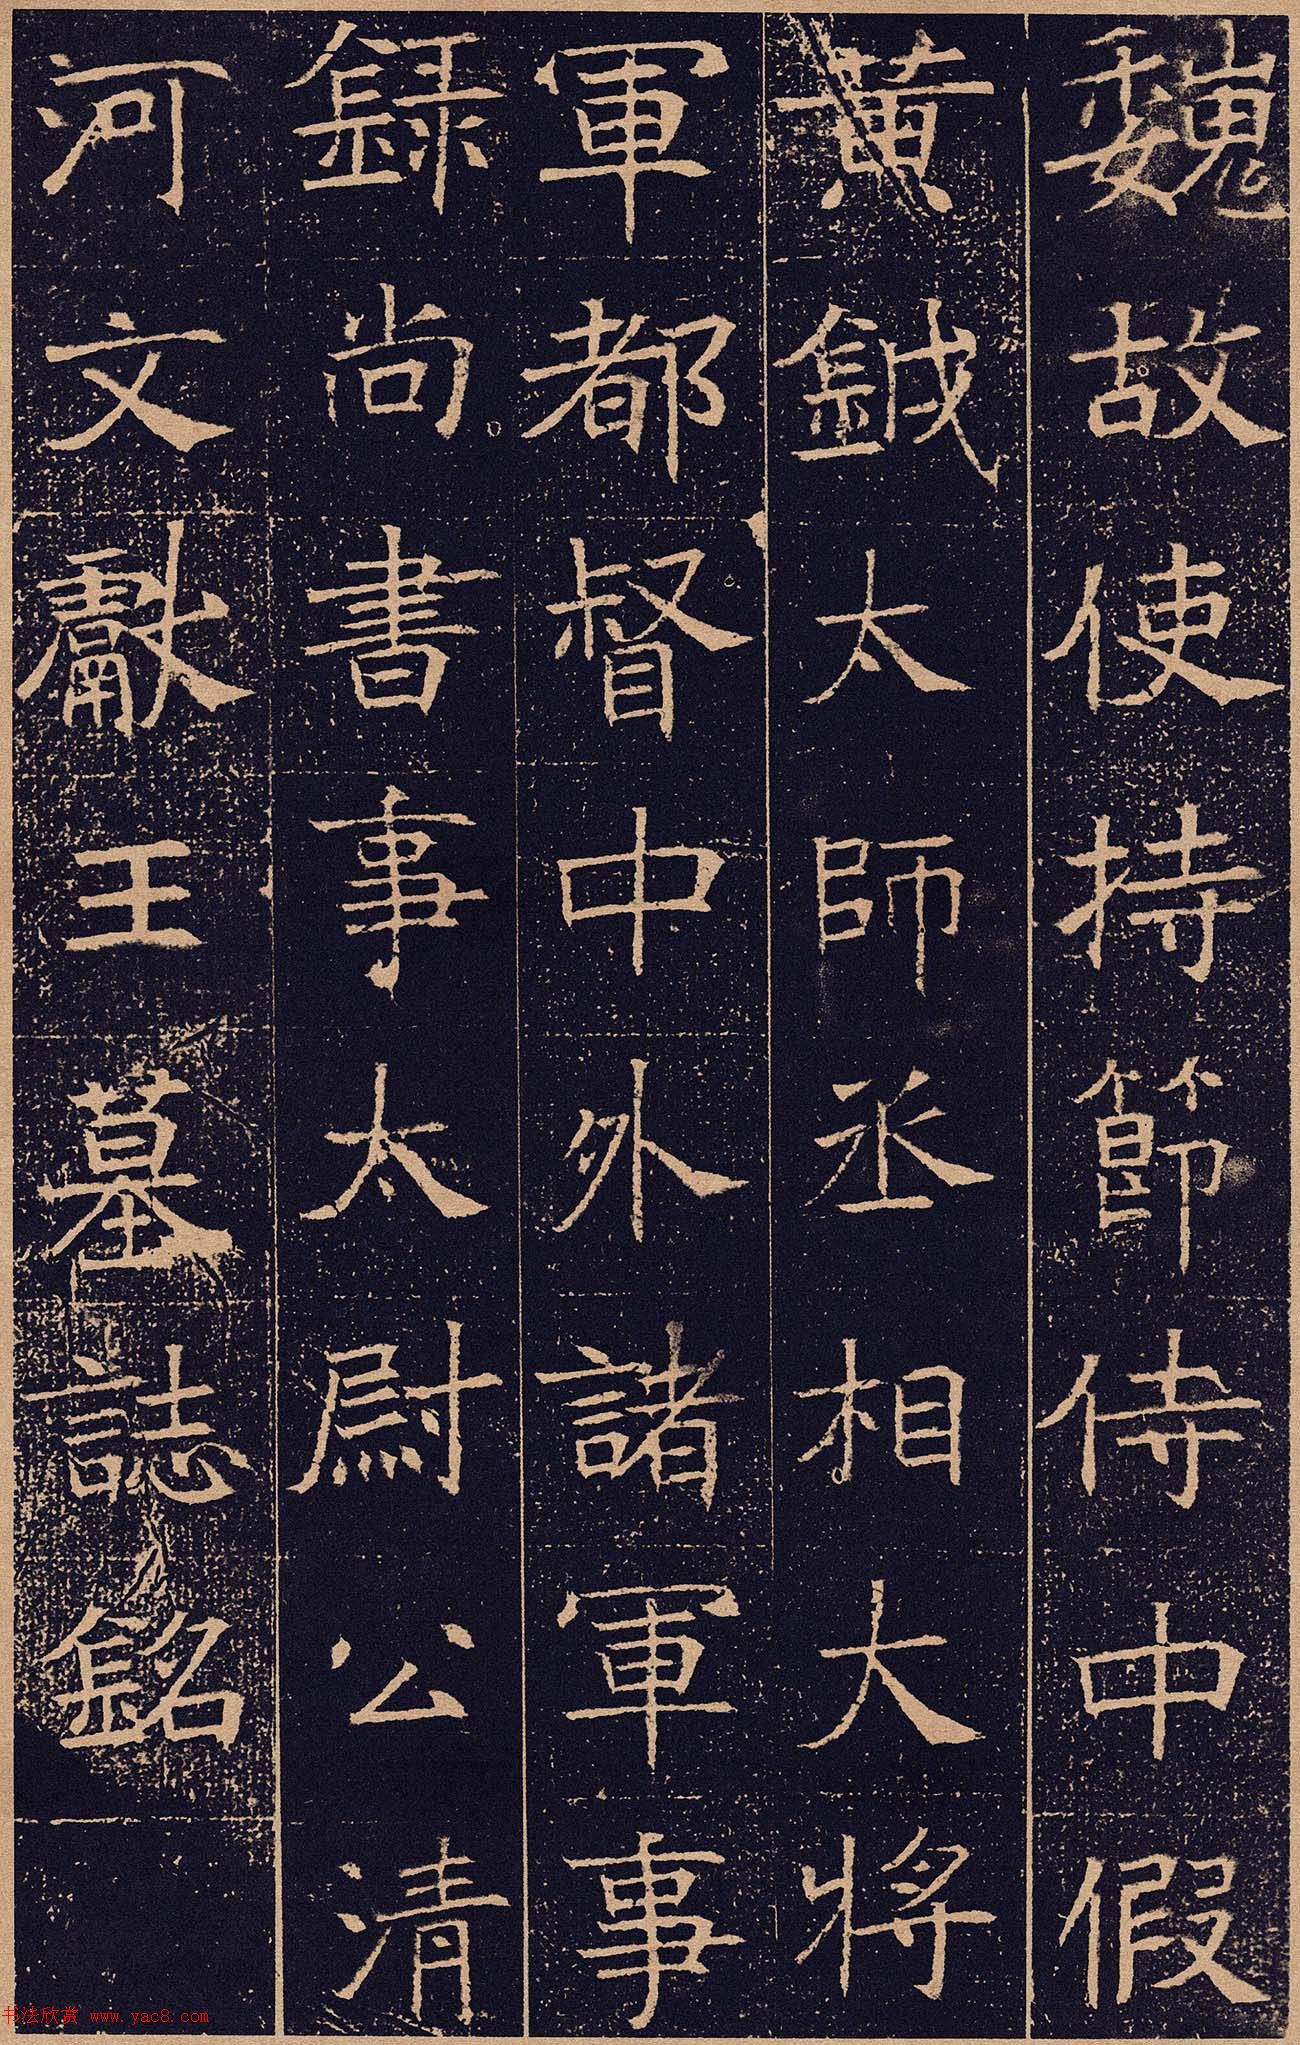 魏故使持節侍中假
黃鉞太師丞相大將
軍都督中外諸軍事
録尚書事太尉公清
河文獻王墓誌銘
书法欣赏 www.yac8.com